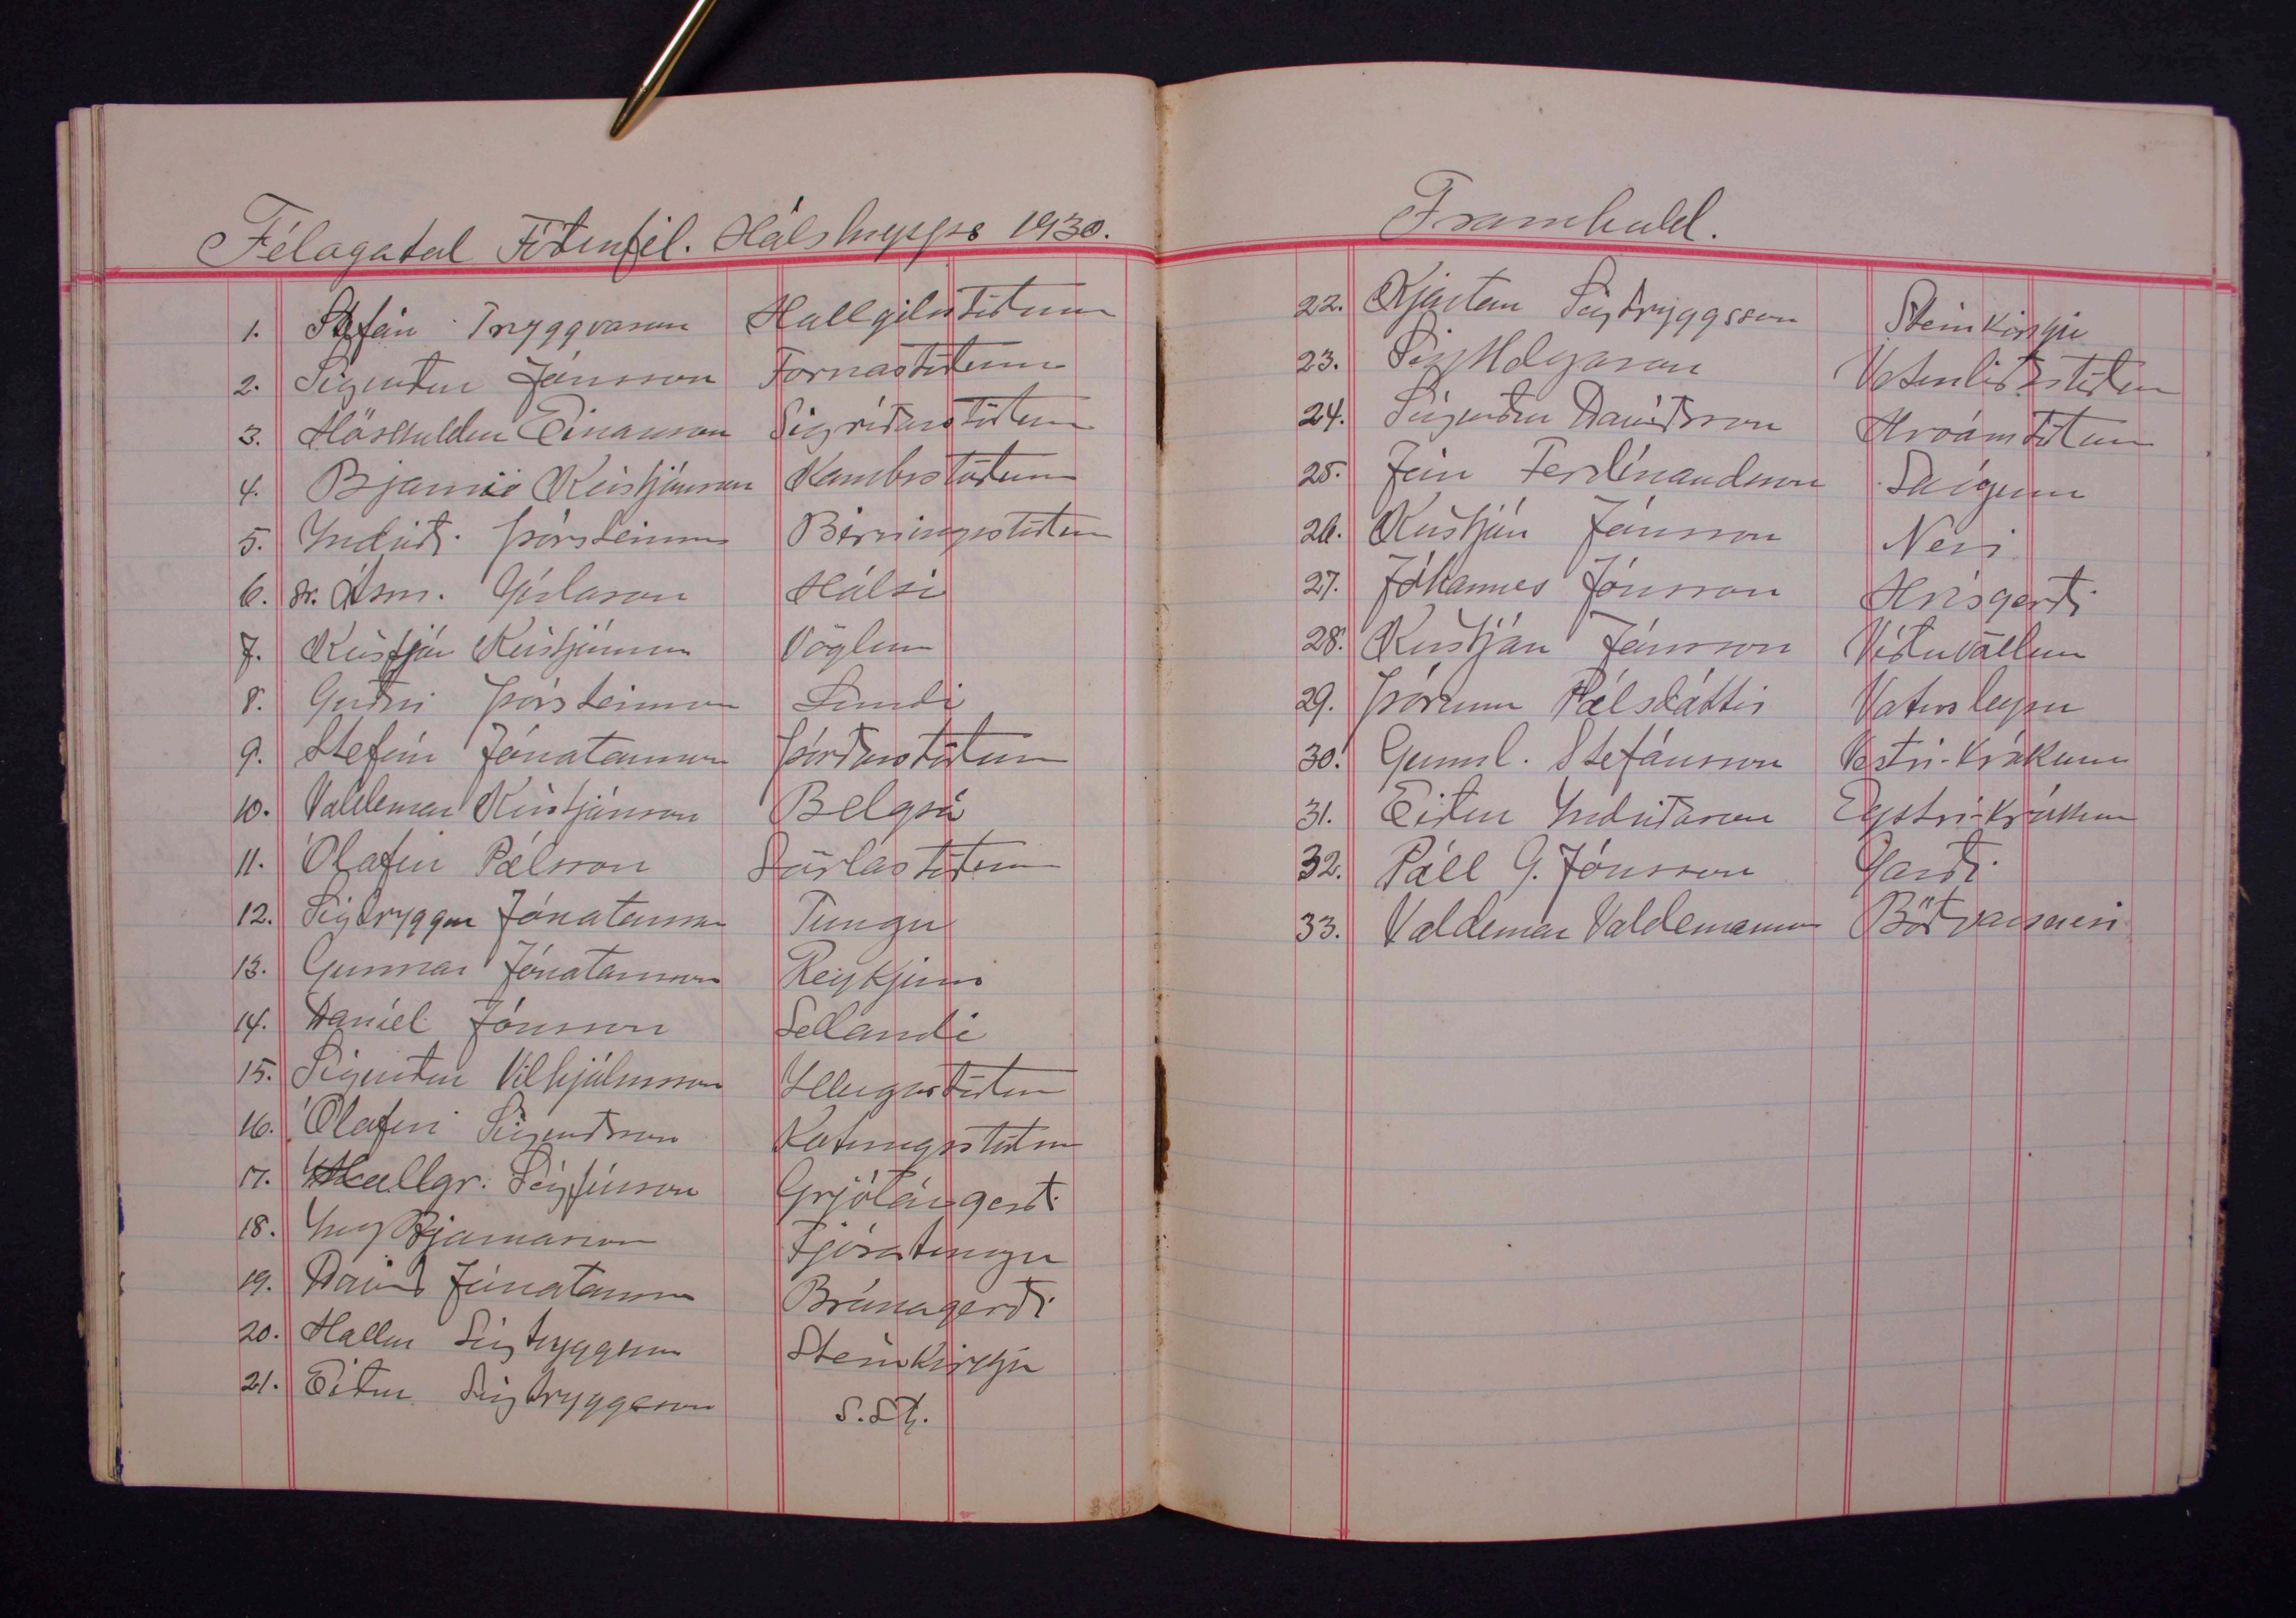 Félagatal Fóðurfél. Hálshrepps 1930.
1. Stefán Tryggvason Hallgilsstöðum
2. Sigurður Jónsson Fornastöðum
3. Höskuldur Einarsson Sigríðarstöðum
4. Bjarni Kristjánsson Kambsstöðum
5. Indriði Þorsteinsson Birningsstöðum
6. sr. Ásm. Gíslason Hálsi
7. Kristján Kristjánsson Vöglum
8. Guðni Þorsteinsson Lundi
9. Stefán Jónatansson Þórðarstöðum
10. Valdemar Kristjánsson Belgsá
11. Ólafur Pálsson Sörlastöðum
12. Sigtryggur Jónatansson Tungu
13. Gunnar Jónatansson Reykjum
14. Daníel Jónsson Sellandi
15. Sigurður Vilhjálmsson Illugastöðum
16. Ólafur Sigurðsson Kotungsstöðum
17. Hallgr. Sigfússon Grjótárgerði
18. Ing. Bjarnason Tjörn­tungu
19. Davíð Jónatansson Brúnagerði
20. Hallur Sigtryggsson Steinkirkju
21. Eiður Sigtryggsson S.St.
Framhald.
22. Kjartan Sigtryggsson Steinkirkju
23. Sig. Helgason Vatnsl.stöðum
24. Sigurður Davíðsson Hróarsstöðum
25. Jón Ferdínandsson Skógum
26. Kristján Jónsson Nesi
27. Jóhannes Jónsson Hrísgerði
28. Kristján Jónsson Víðivöllum
29. Þórunn Pálsdóttir Vatnsleysu
30. Gunnl. Stefánsson Vestri-Krókum
31. Eiður Indriðason Eystri-Krókum
32. Páll G. Jónsson Garði
33. Valdemar Valdemarsson Böðvarsnesi